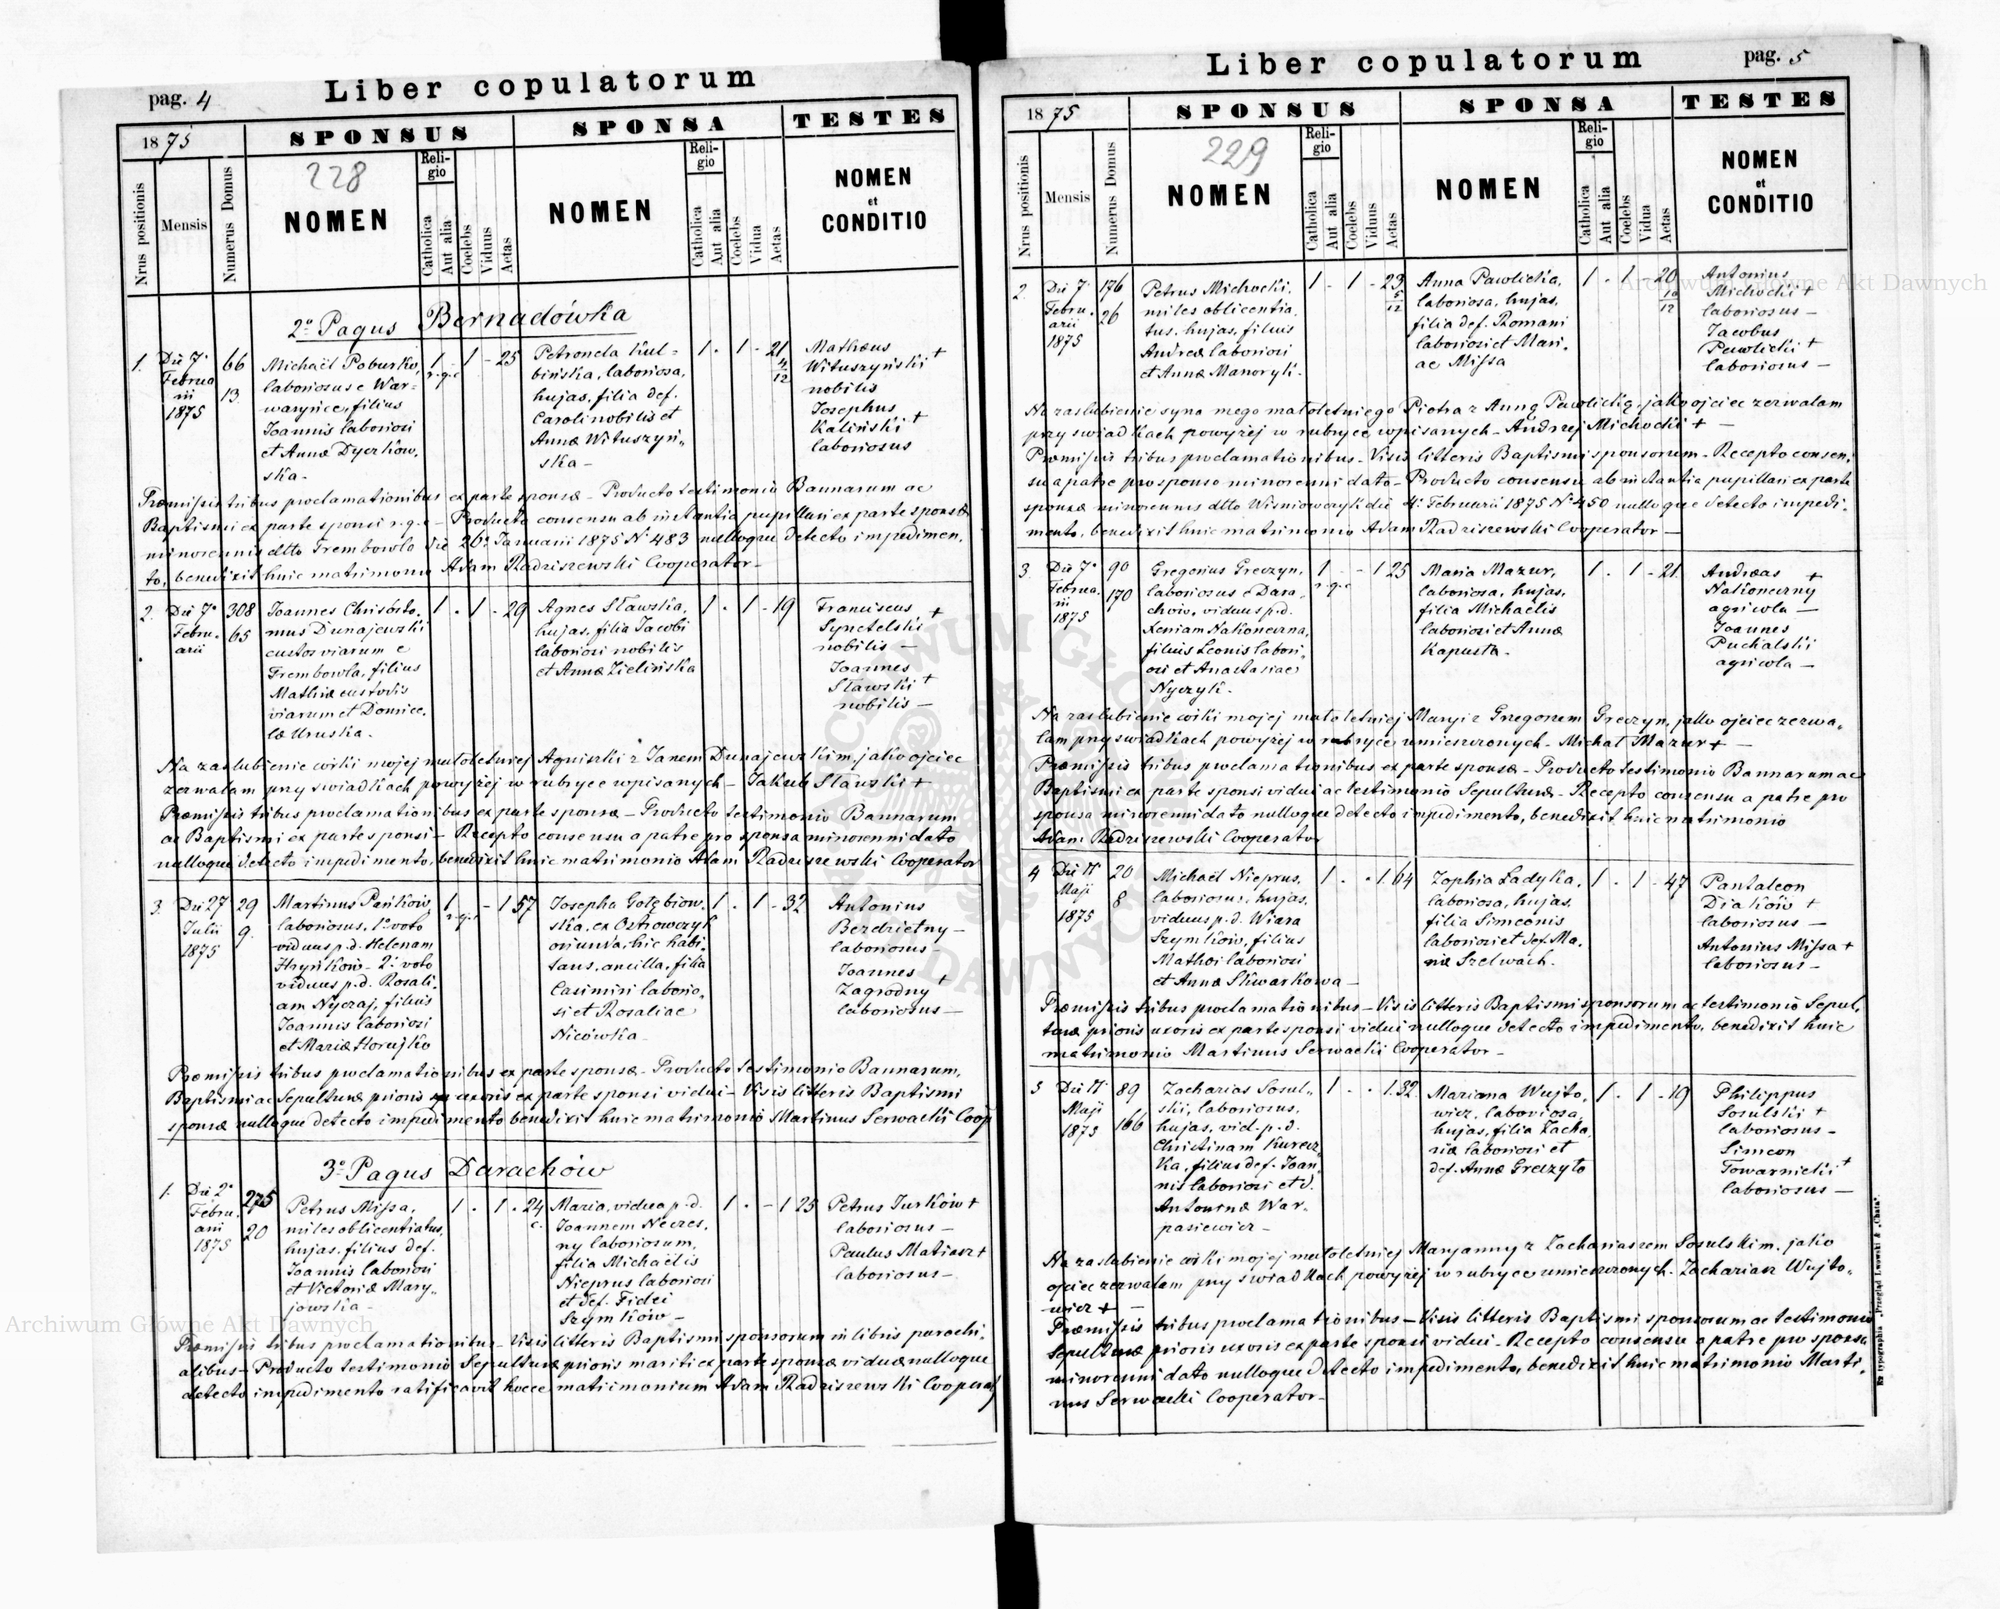 Liber copulatorum
pag. 4
1875
SPONSUS
SPONSA
TESTES
Nrus positionis
Mensis
Numerus Domus
228
NOMEN
Religio
Catholica
Aut alia
Coelebs
Viduus
Aetas
NOMEN
Religio
Catholica
Aut alia
Coelebs
Vidua
Aetas
NOMEN
et
CONDITIO
2° Pagus Bernadówka
1.
Die 7ª
Februa
rii
1875
66
13.
Michaël Poburko,
laboriosus e War-
waryńce, filius
Joannis laboriosi
et Annæ Dyczkow,
ska -
1 - 1 - 25
r.g.c
Petronela Kul-
bińska, laboriosa,
hujas, filia def.
Caroli nobilis et
Annæ Wituszyń„
ska -
1 . 1 - 21
4
12
Mathæus
Wituszyński +
nobilis
Josephus
Kaliński +
laboriosus
Præmissis tribus proclamationibus ex parte sponsæ - Producto testimonio Bannarum ac
Baptismi ex parte sponsi r.g.c - Producto consensu ab instantia pupillari ex parte sponsæ
minorennis dtto Trembowlo die 26ª Januarii 1875 N. 483 nulloque detecto impedimen,
to, benedixit huic matrimonio Adam Radziszewski Cooperator -
2.
Die 7ª
Febru.
arii
308
65
Joannes Chrisósto.
mus Dunajewski
custos viarum e
Trembowla, filius
Mathiæ custodis
viarum et Domice.
læ Uruska.
1 . 1 - 29
Agnes Sławska,
hujas, filia Jacobi
laboriosi nobilis
et Annæ Zielińska
1 . 1 - 19
Franciscus +
Synetelski
nobilis -
Joannes
Sławski +
nobilis -
Na zaslubienie córki mojej małoletniej Agniszki z Janem Dunajewskim, jako ojciec
zezwalam przy swiadkach powyżej w rubryce wpisanych - Jakub Sławski +
Præmissis tribus proclamationibus ex parte sponsæ - Producto testimonio Bannarum
ac Baptismi ex parte sponsi - Recepto consensu a patre pro sponsa minorenni dato
nulloque detecto impedimento, benedixit huic matrimonio Adam Radziszewski Cooperator
3.
Die 27
Julii
1875
29
9.
Martinus Pańków,
laboriosus, 1º voto
viduus p.d. Helenam
Hryńków - 2º voto
viduus p.d. Rosali-
am Nyczaj, filius
Joannis laboriosi
et Mariæ Horujko
1 - - 1 57
r.g.c
Josepha Gołębiow,
ska, ex Ostrowczyk
oriunda, hic habi-
tans, ancilla, filia
Casimiri laborio,
si et Rosaliae
Nicówka -
1 . 1 - 32
Antonius
Bezdzietny -
laboriosus -
Joannes +
Zagrodny
laboriosus -
Præmissis tribus proclamationibus ex parte sponsæ - Producto testimonio Bannarum,
Baptismi ac Sepulturæ prioris uxoris ex parte sponsi vidui - Visis litteris Baptismi
sponsæ nulloque detecto impedimento benedixit huic matrimonio Martinus Serwacki Coop
3º Pagus Darachów
1.
Die 2ª
Febru.
arii
1875
275
20
Petrus Missa,
miles oblicentiatus,
hujas, filius def.
Joannis laboriosi
et Victoriæ Mary-
jowska -
1 . 1 . 24
Maria, vidua p.d.
Joannem Neczes,
ny laboriosum,
filia Michaëlis
Nieprus laboriosi
et def. Fidei
Szymków -
1 . - 1 25
Petrus Jurków +
laboriosus -
Paulus Matiasz +
laboriosus -
Præmissis tribus proclamationibus - Visis litteris Baptismi sponsorum in libris parochi.
alibus - Producto testimonio Sepulturæ prioris mariti ex parte sponsæ viduæ nulloque
detecto impedimento ratificavit hocce matrimonium Adam Radziszewski Cooperat
Liber copulatorum
pag. 5
1875
SPONSUS
SPONSA
TESTES
Nrus positionis
Mensis
Numerus Domus
229
NOMEN
Religio
Catholica
Aut alia
Coelebs
Viduus
Aetas
NOMEN
Religio
Catholica
Aut alia
Coelebs
Vidua
Aetas
NOMEN
et
CONDITIO
2.
Die 7.
Febru.
arii
1875
176
26
Petrus Michocki,
miles oblicentia.
tus, hujas, filius
Andreæ laboriosi
et Annæ Manoryk.
1 - 1 - 23
5
12
Anna Pawlicka,
laboriosa, hujas,
filia def. Romani
laboriosi et Mari-
ae Missa
1 . 1 - 20
10
12
Antonius
Michocki +
laboriosus -
Jacobus
Pawlicki +
laboriosus -
Na zaslubienie syna mego małoletniego Piotra z Anną Pawlicką, jako ojciec zezwalam
przy swiadkach powyżej w rubryce wpisanych - Andrzej Michocki + -
Præmissis tribus proclamationibus - Visis litteris Baptismi sponsorum - Recepto consen,
su a patre pro sponso minorenni dato - Producto consensu ab instantia pupillari ex parte
sponsæ minorennis dtto Wisniowczyk die 4ª Februarii 1875 N. 450 nulloque detecto impedi-
mento, benedixit huic matrimonio Adam Radziszewski Cooperator -
3.
Die 7ª
Februa.
rii
1875
90
170
Gregorius Greczyn,
laboriosus e Dara
chów, viduus p.d.
Xeniam Nakoneczna,
filius Leonis labori-
osi et Anastasiae
Nyczyk.
1 - - 1 25
r.g.c
Maria Mazur,
laboriosa, hujas,
filia Michaëlis
laboriosi et Annæ
Kapusta.
1 . 1 - 21
Andreas +
Nakoneczny
agricola -
Joannes
Puchalski
agricola -
Na zaslubienie córki mojej małoletniej Maryi z Grzegorzem Greczyn, jako ojciec zezwa„
lam przy swiadkach powyżej w rubryce umieszczonych - Michał Mazur + -
Præmissis tribus proclamationibus ex parte sponsæ - Producto testimonio Bannarum ac
Baptismi ex parte sponsi vidui ac testimonio Sepulturæ - Recepto consensu a patre pro
sponsa minorenni dato nulloque detecto impedimento, benedixit huic matrimonio
Adam Radziszewski Cooperator
4
Die 17
Maji
1875
20
8
Michaël Nieprus,
laboriosus, hujas,
viduus p.d. Wiara
Szymków, filius
Mathei laboriosi
et Annæ Skwarkowa -
1 . . 1. 64
Zophia Ładyka,
laboriosa, hujas,
filia Simeonis
laboriosi et def. Ma.
riæ Szelwach.
1 . 1 - 47
Pantaleon
Diaków +
laboriosus -
Antonius Missa +
laboriosus -
Præmissis tribus proclamationibus - Visis litteris Baptismi sponsorum ac testimonio Sepul,
turæ prioris uxoris ex parte sponsi vidui nulloque detecto impedimento, benedixit huic
matrimonio Martinus Serwacki Cooperator -
5
Die 17.
Maji
1875
89
166
Zacharias Sosul-
ski, laboriosus,
hujas, vid. p.d.
Christinam Kurcz,
Ka, filius def. Joan,
nis laboriosi et d.
Antoninæ War-
pasiewicz -
1 . . 1. 32.
Mariana Wujto,
wicz, laboriosa,
hujas, filia Zacha,
riæ laboriosi et
def. Annæ Greczyło
1 . 1 - 19
Philippus
Sosulski +
laboriosus -
Simeon
Towarnicki +
laboriosus -
Na zaslubienie córki mojej małoletniej Maryanny z Zachariaszem Sosulskim, jako
ojciec zezwalam przy swiadkach powyżej w rubryce umieszczonych. Zachariasz Wujto„
wicz + -
Præmissis tribus proclamationibus - Visis litteris Baptismi sponsorum ac testimonio
Sepulturæ prioris uxoris ex parte sponsi vidui - Recepto consensu a patre pro sponsa
minorenni dato nulloque detecto impedimento, benedixit huic matrimonio Marti.
nus Serwacki Cooperator -
Ex typographia „Przegląd Lwowski & „Chata".
Archiwum Główne Akt Dawnych
Archiwum Główne Akt Dawnych
ARCHIWUM GŁÓWNE AKT DAWNYCH